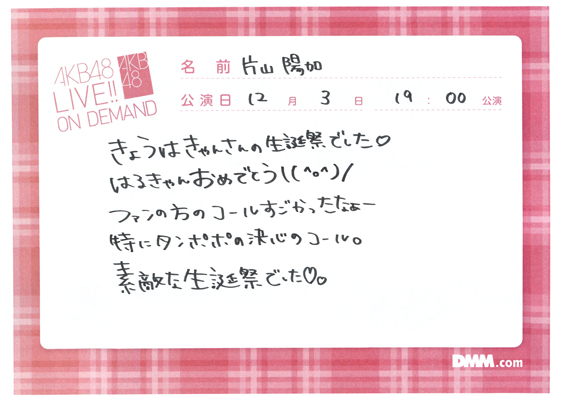 AKB48
LIVE!!
ON DEMAND
AKB
48
名前 片山陽加
公演日 12月3日 19:00公演
きょうはきゃんさんの生誕祭でした♡
はるきゃんおめでとう\(^o^)/
ファンの方のコールすごかったなぁー
特にタンポポの決心のコール。
素敵な生誕祭でした♡。
DMM.com